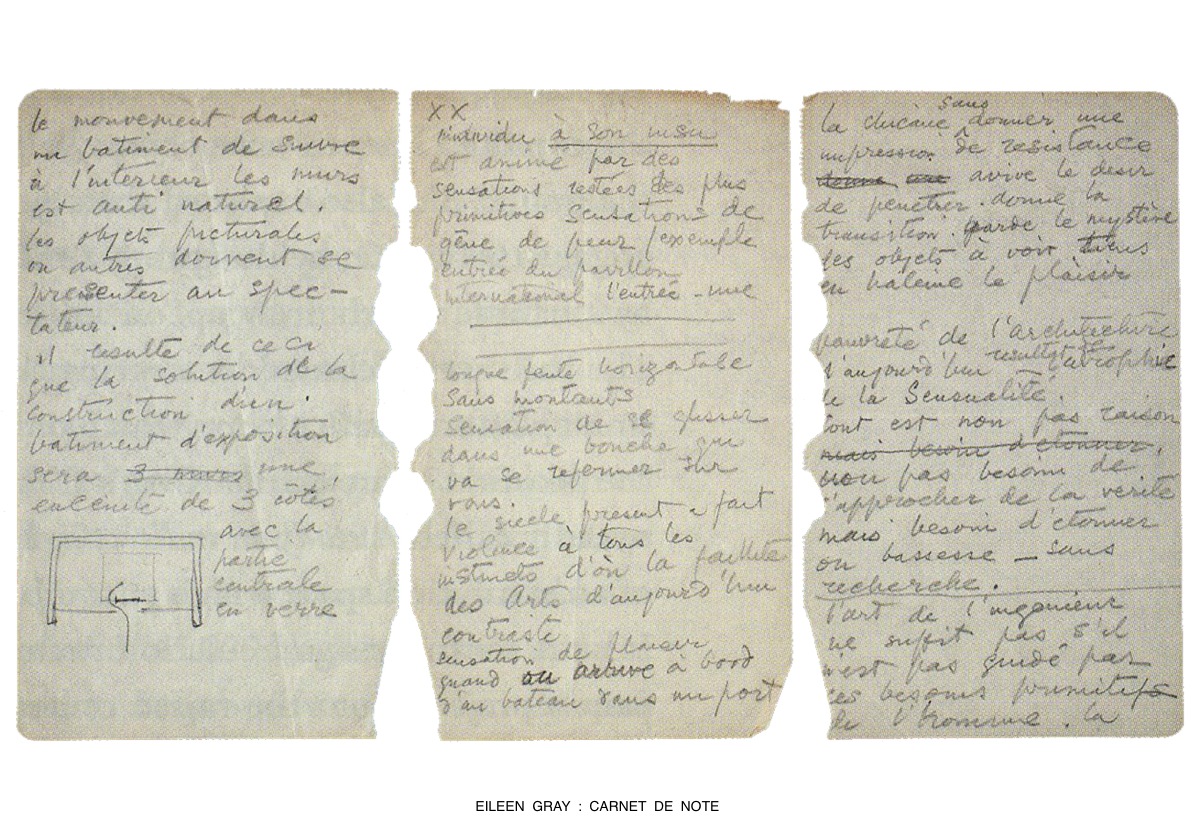 le mouvement dans
un batiment de suivre
à l'interieur les murs
est anti naturel.
les objets picturales
ou autres doivent se
presenter au spec-
tateur.
il resulte de ceci
que la solution de la
construction d'un
batiment d'exposition
sera 3 murs une
enceinte de 3 côtés
avec la
partie
centrale
en verre
XX
individu à son insu
est animé par des
sensations restées des plus
primitives sensations de
gêne de peur (exemple
entrée du pavillon
international l'entrée - une
longue fente horizontale
sans montants
sensation de se glisser
dans une bouche qui
va se refermer sur
vous.
le siecle present a fait
violence à tous les
instincts d'où la faillite
des Arts d'aujourd'hui
contraste
sensation de plaisir
quand on arrive à bord
d'un bateau dans un port
sans
la chicane donner une
impression de resistance
donne une avive le desir
de penétrer. donne la
transition. garde le mystère
des objets à voir tiens
en haleine le plaisir
pauvreté de l'architecture
d'aujourd'hui resultat de atrophie
de la Sensualité.
tout est non pas raison
mais besoin d'etonner,
non pas besoin de
s'approcher de la verité
mais besoin d'etonner
ou bassesse - sans
recherche.
l'art de l'ingenieur
ne sufit pas s'il
n'est pas guidé par
les besoins primitifs
de l'homme. la
EILEEN GRAY : CARNET DE NOTE